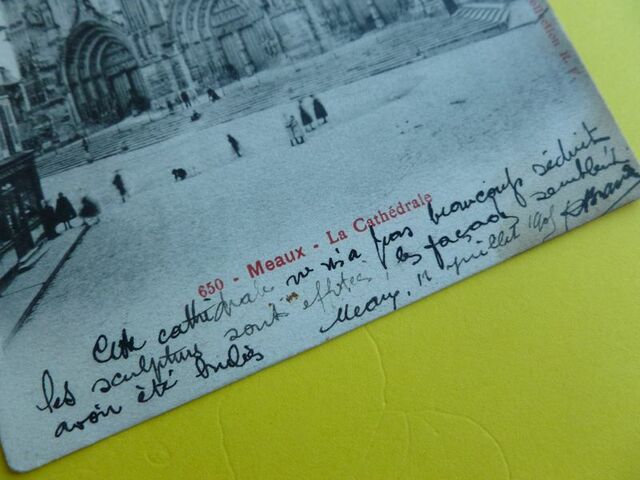 650 - Meaux - La Cathédrale
Cette cathédrale ne m'a pas beaucoup séduit
les sculptures sont effritées, les façades semblent
avoir été
Meaux, 12 juillet 1905